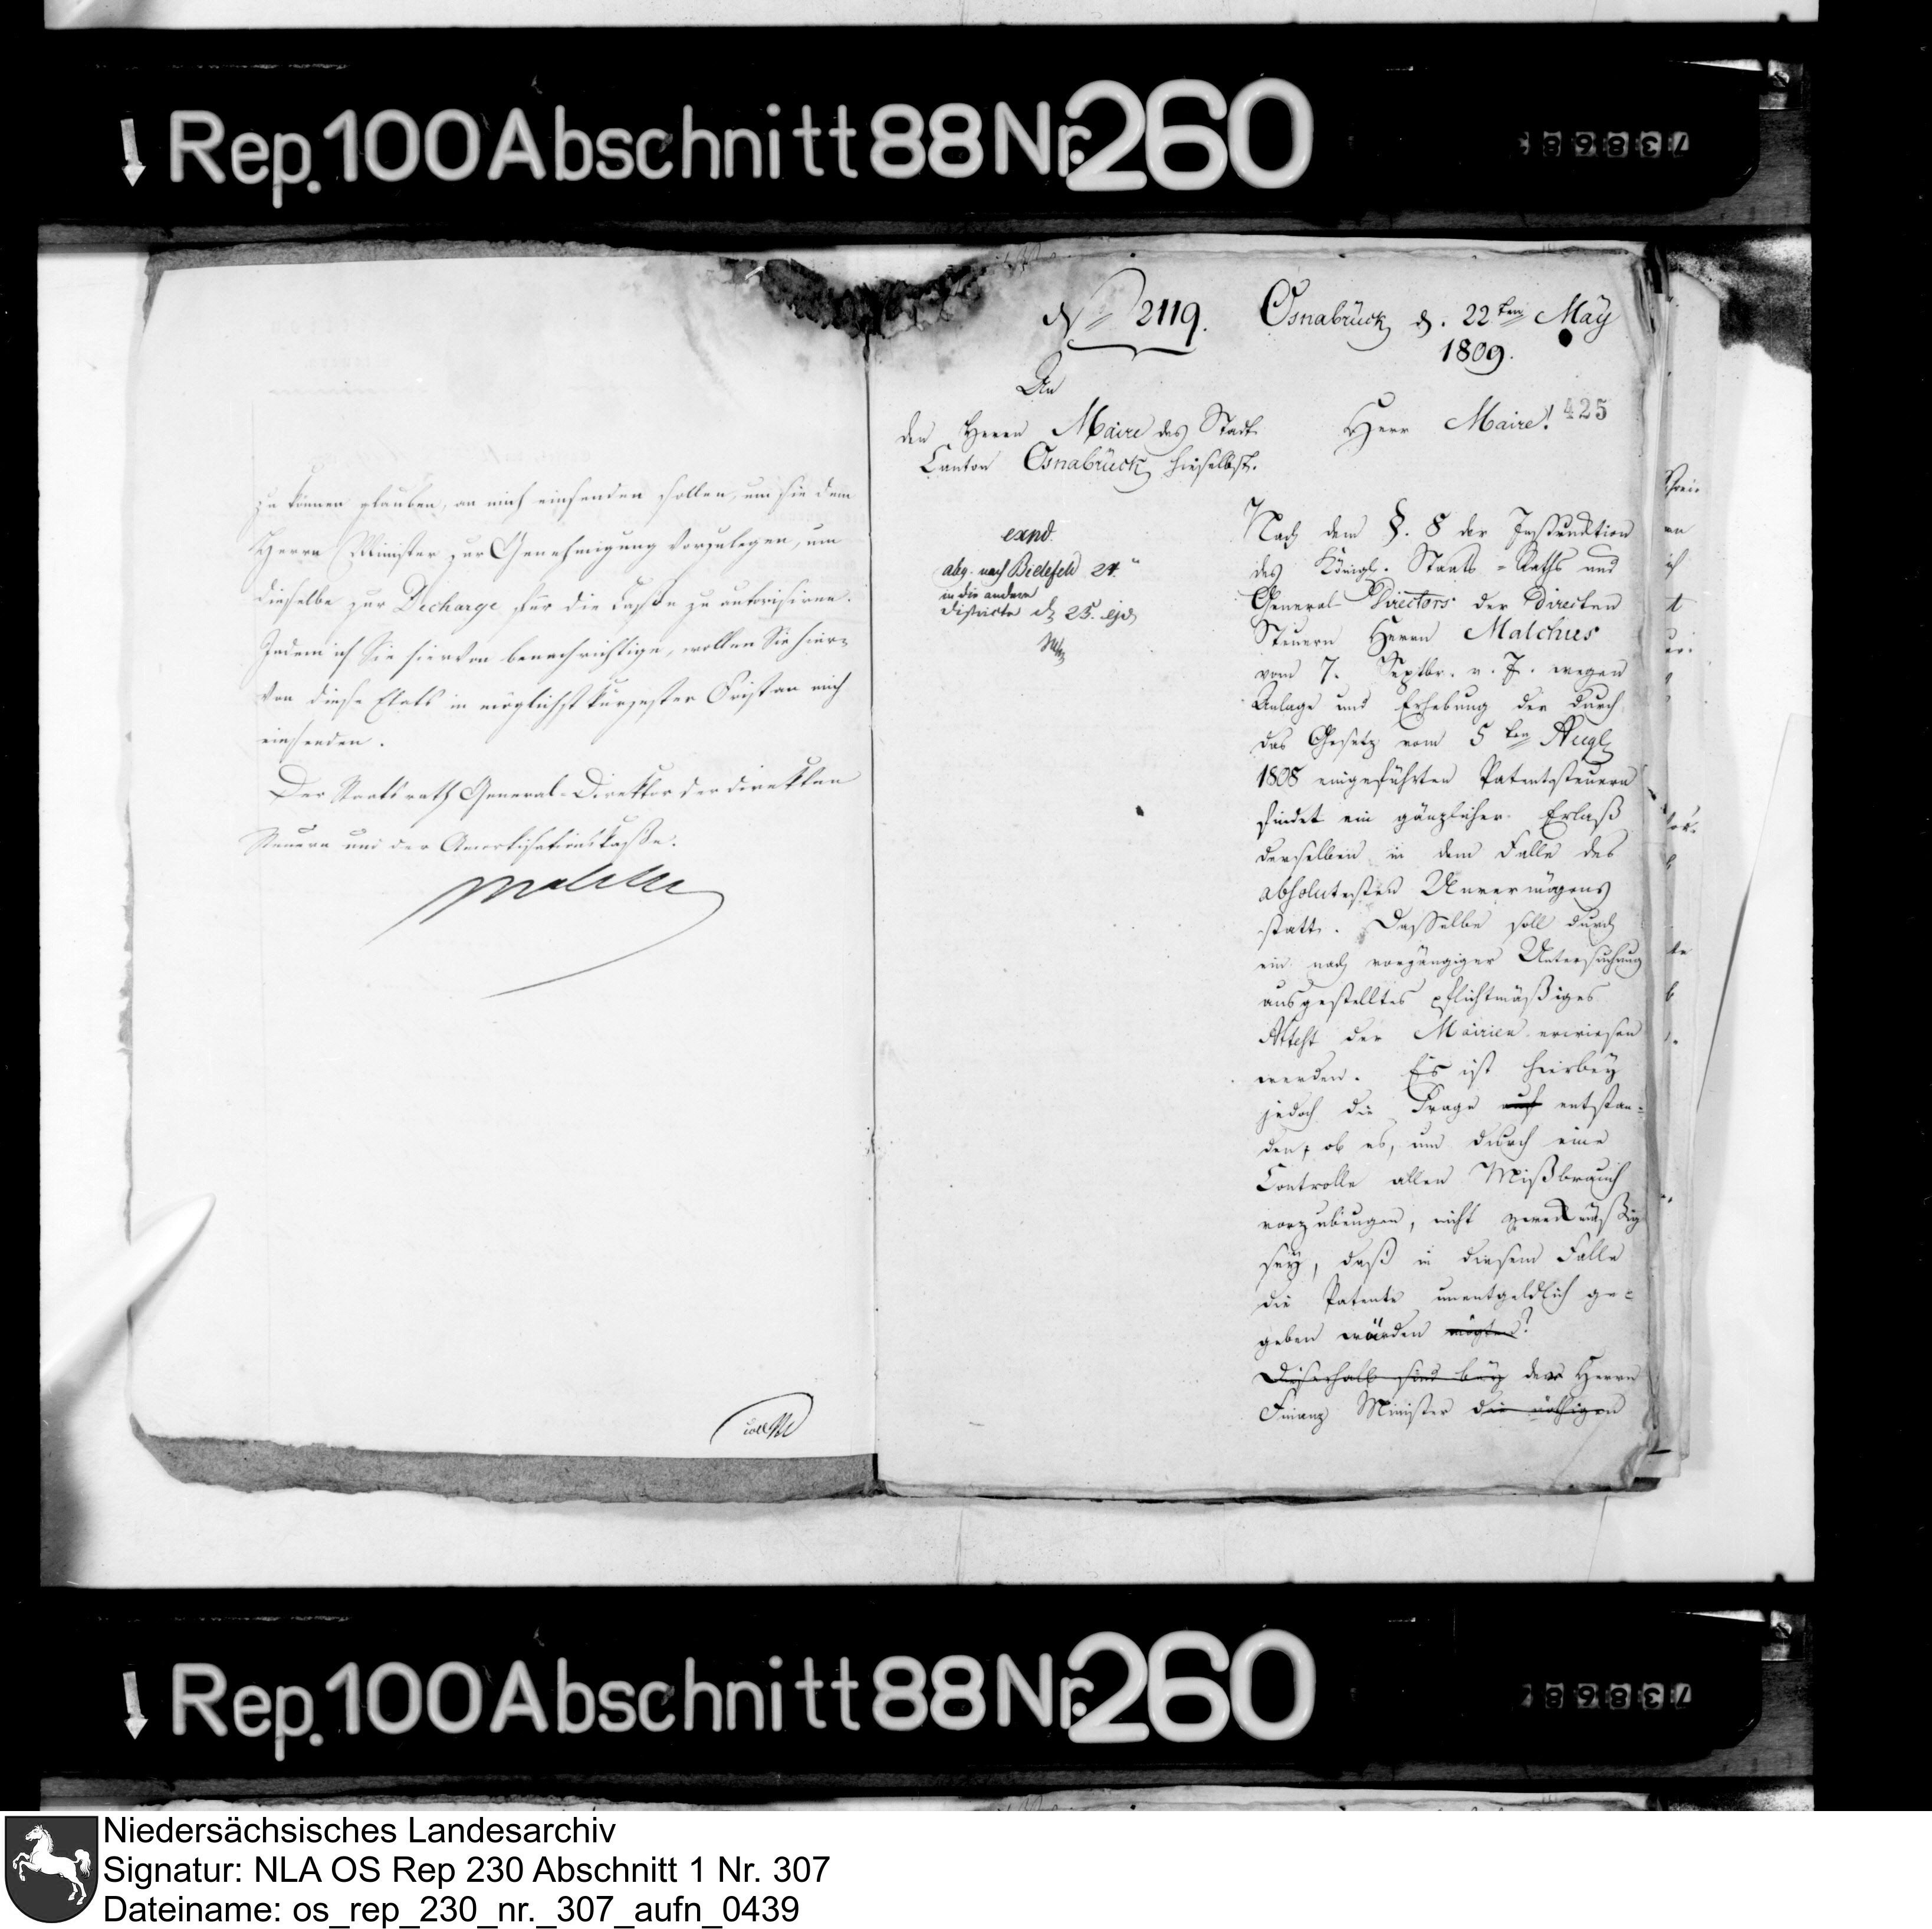 Rep. 100 Abschnitt 88 Nr. 260
73868
zu können glauben, an mich einsenden sollen, um sie dem
Herrn Minister zur Genehmigung vorzulegen, um
dieselbe zur Decharge für die Casse zu autorisiren.
Indem ich Sie hiervon benachrichtige, wollen Sie hier-
von diese Etats in möglichst kürzester Frist an mich
einsenden.
Der Staatsrath General-Direktor der direkten
Steuern und der Amortisationskasse.
Malchus
No 2119.
Osnabrück d. 22ten May
1809.
425
An
den Herrn Maire des Stadt
Canton Osnabrück hieselbst.
Herr Maire!
expd.
abg. nach Bielefeld 24.
in die andern
Districte d 25. ejd
Nach dem §. 8 der Instrucktion
des Königl. Staats-Raths und
General Directors der Directen
Steuern Herrn Malchus
vom 7. Septbr. v. J. wegen
Anlage und Erhebung der durch
das Gesetz vom 5ten Augt
1808 eingeführten Patentsteuern
findet ein gänzlicher Erlaß
derselben in dem Falle des
absolutesten Unvermögens
statt. Dasselbe soll durch
ein nach vorgängiger Untersuchung
ausgestelltes pflichtmäßiges
Attest der Mairien erwiesen
werden. Es ist hierbey
jedoch die Frage auf entstan-
den, ob es, um durch eine
Controlle allen Mißbrauch
vorzubeugen, nicht zweckmäßig
sey, daß in diesem Falle
die Patente unentgeldlich ge-
geben würden mögten?
Dieserhalb sind bey der Herrn
Finanz Minister die nöthigen
Rep. 100 Abschnitt 88 Nr. 260
73868
Niedersächsisches Landesarchiv
Signatur: NLA OS Rep 230 Abschnitt 1 Nr. 307
Dateiname: os_rep_230_nr._307_aufn_0439